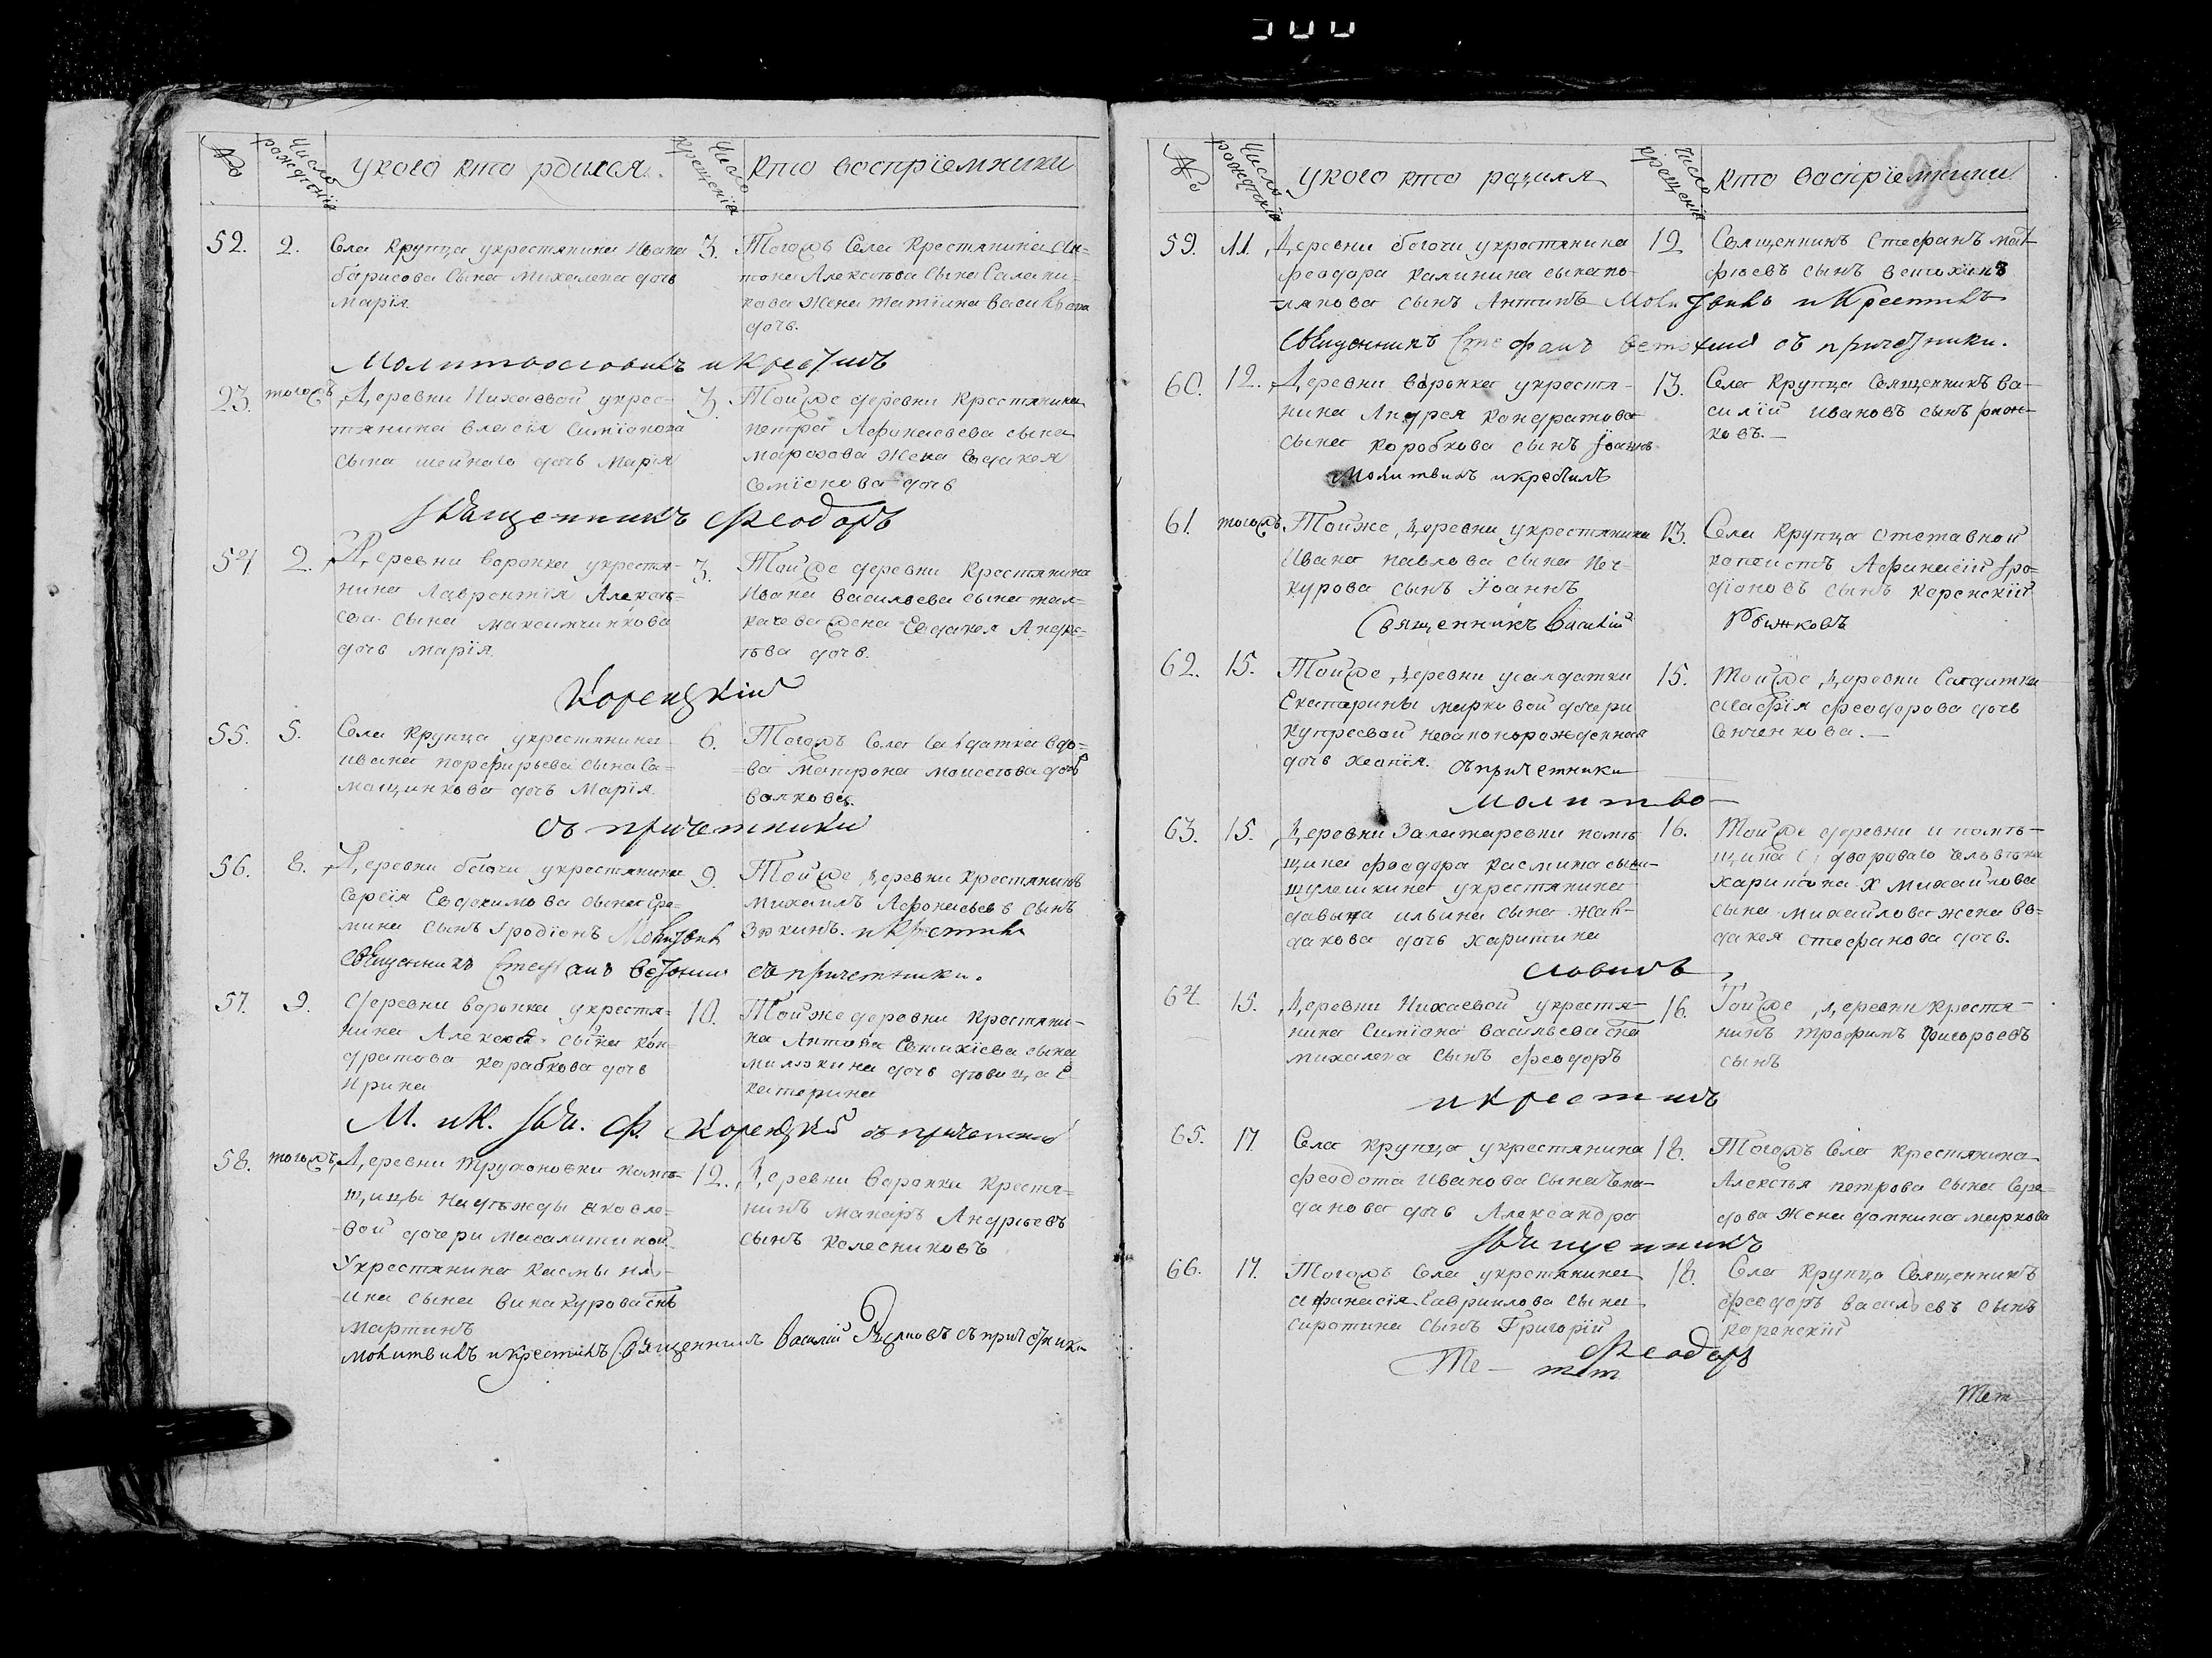 №
Число рожденія
у кого кто рдился
Число крещенія
кто воспріемники
52. 2. Села Крупца укрестянина Ивана
барисова Сына Михалева дочь
Марія
3. Тогожъ Села Крестянина Ан-
тона Алексѣева Сына Салени-
кова Жена татіана васильева
дочь.
Молитвословилъ и Крестилъ
23. тогожъ Деревни Нихаевой укрес-
тянина власія Симіонова
Сына шейнаго дочь Марія
3. Тойже деревни Крестянина
петра Афонасьева сына
марозова Жена Евдакея
Семіонова дочь
Священникъ Феодоръ
54. 2. Деревни воронка укрестя-
нина Лаврентія Алексѣ-
ева сына максимчинкова
дочь марія.
3. Тойже деревни Крестянина
Ивана васильева сына тал-
качева Жена Евдакея Андре-
ѣва дочь.
Коренскій
55. 5. Села Крупца укрестянина
ивана порфирьева сына Са-
мащинкова дочь Марія
6. Тогожъ Села Салдатка вдо-
ва Матрона моисеѣва дочь
валкова.
съ причетники
56. 8. Деревни богочи укрестянина
Сергія Евдокимова сына Ере-
мина сынъ Іродіонъ Молитвилъ
9. Тойже деревни Крестянинъ
михаилъ Афонасьевъ сынъ
Зюкинъ. и Крестилъ
Священникъ Стефанъ Ветохинъ съ причетники.
57. 9. деревни воронка укрестя-
нина Алексѣя сына Кон-
дратова карабкова дочь
Ирина
10. Тойже деревни Крестяни-
на Антона Евтихіева сына
милюкина дочь дѣвица Е-
катерина
М. и К. Свя. Ф. Коренскій съ причетники
58. тогожъ Деревни труфоновки помѣ-
щицы надѣжды яковле-
вой дочери Масалитиной
Укрестянина касмы иль-
ина сына винакурова снъ
мартинъ
12. Деревни воронки Крестя-
нинъ макаръ Андрѣевъ
сынъ колесниковъ
молитвилъ и крестилъ Священникъ Василій Рыжковъ съ причетники
№
Число рожденія
у кого кто радился
Число крещенія
кто воспріемники
59. 11. Деревни богочи укрестянина
феодора калинина сына по-
лякова сынъ Антипъ Молитвилъ и Крестилъ
12 Священникъ Стефанъ мат-
фѣевъ сынъ ветохинъ
Священникъ Стефанъ ветохинъ съ причетники.
60. 12. Деревни воронка укрестя-
нина Андрея кондратова
сына коробкова сынъ Іоаннъ
молитвилъ и крестилъ
13. Села Крупца Священникъ ва-
силій ивановъ сынъ рыж-
ковъ.
61. тогожъ Тойже Деревни укрестянина
Ивана павлова сына поч-
курова сынъ Іоаннъ
Священникъ Василій
13. Села Крупца отставной
капеистъ Афанасій Іро-
діоновъ сынъ коренскій
Рыжковъ
62. 15. Тойже Деревни усалдатки
Екатарины марковой дочери
купреевой незаконорожденная
дочь хеонія. съ причетники
15. тойже Деревни Салдатка
феодорова дочь
Сенченкова.
Молитво
63. 15. Деревни Залатаревки помѣ-
щика феодора касмина сына
шулешкина укрестянина
давыда ильина сына
дакова дочь харитина
16. Тойже деревни и помѣ-
щика двороваго человѣка
харитона х михайлова
сына михайлова жена ев-
дакея стефанова дочь.
словилъ
64. 15. Деревни Нихаевой укрестя-
нина Симіона васильева сна
михалева сынъ феодоръ
16. Тойже Деревни крестя-
нинъ трофимъ Григорьевъ
сынъ
и крестилъ
65. 17. Села Крупца укрестянина
феодота иванова сына
данова дочь Александра
18. Тогожъ Села крестянина
Алексѣя петрова сына Сере-
дова жена домнина маркова
Священникъ
66. 17. Тогожъ Села укрестянина
афанасія Гаврилова сына
сиротина сынъ Григорій
18. Села Крупца Священникъ
феодоръ васильевъ сынъ
коренскій
Феодоръ